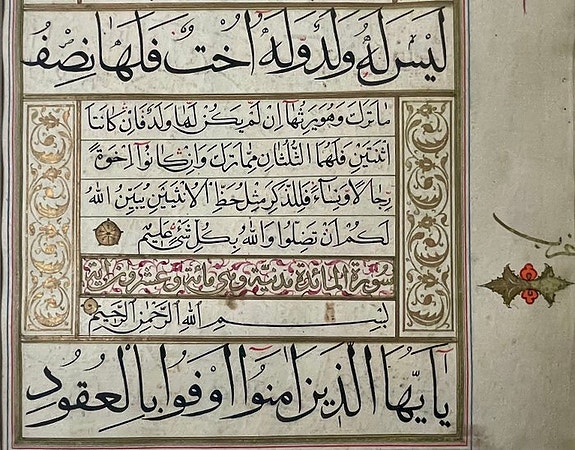 لَيْسَ لَهُ وَلَدٌ وَلَهُ اُخْتٌ فَلَهَا نِصْفُ
مَا تَرَكَ وَهُوَ يَرِثُهَآ اِنْ لَمْ يَكُنْ لَهَا وَلَدٌ فَاِنْ كَانَتَا
اثْنَتَيْنِ فَلَهُمَا الثُّلُثَانِ مِمَّا تَرَكَ وَاِنْ كَانُوٓا اِخْوَةً
رِجَالًا وَنِسَآءً فَلِلذَّكَرِ مِثْلُ حَظِّ الْاُنْثَيَيْنِ يُبَيِّنُ اللّٰهُ
لَكُمْ اَنْ تَضِلُّوا وَاللّٰهُ بِكُلِّ شَيْءٍ عَلِيمٌ
سورة المائدة مدنية وهى مائة وعشرون اية
بِسْمِ اللّٰهِ الرَّحْمٰنِ الرَّحِيمِ
يَٓا اَيُّهَا الَّذِينَ اٰمَنُٓوا اَوْفُوا بِالْعُقُودِ
حزب